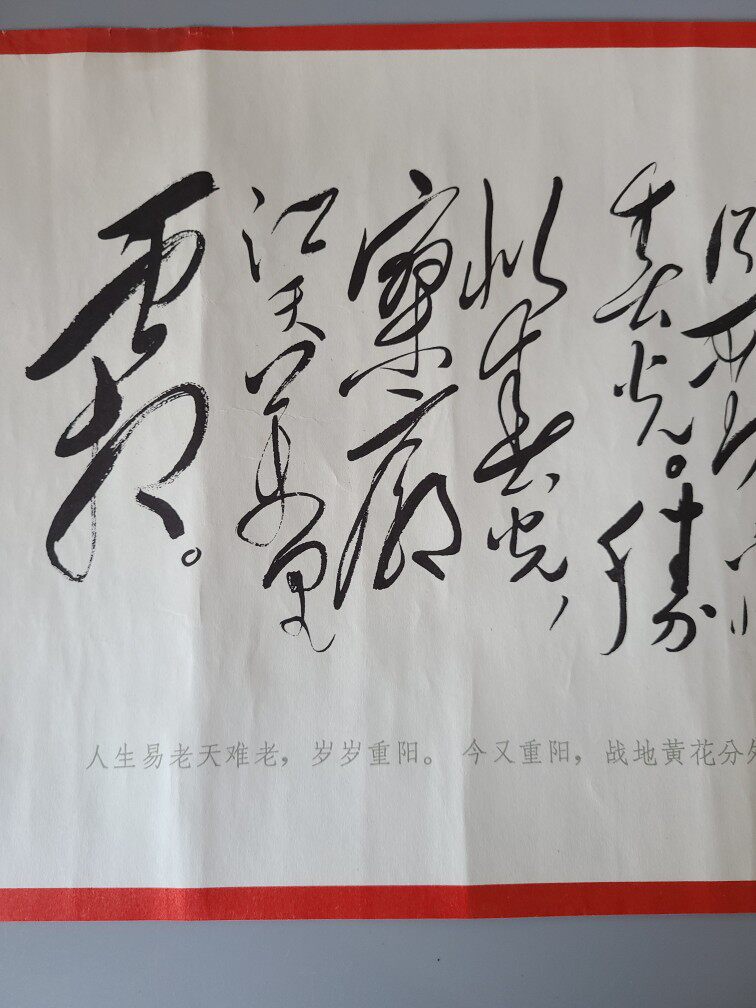 春光。勝
似春光，
寥廓
江天万里
霜。
人生易老天难老，岁岁重阳。 今又重阳，战地黄花分